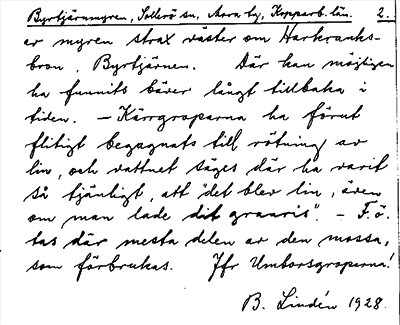 Byrtjärnmyren, Sollerö sn, Mora tg, Kopparb. län. 2.
av myren strax väster om Harkranks-
bron, Byrtjärnen. Där kan möjligen
ha funnits bäver långt tillbaka i
tiden. – Kärrgroparna ha förut
flitigt begagnats till rötning av
lin, och vattnet säges där ha varit
så tjänligt, att "det blev lin, även
om man lade dit granris". – F. ö.
tas där mesta delen av den mossa,
som förbrukas. Jfr Umborsgroparna!
B. Lindén 1928.